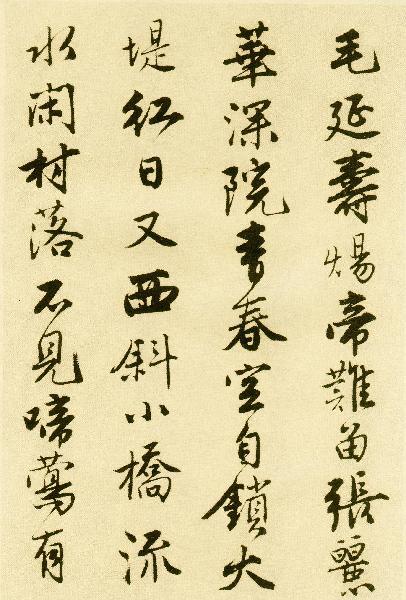 毛延壽煬帝難留張麗
華深院青春空自鎖大
堤紅日又西斜小橋流
水閑村落不見啼鶯有